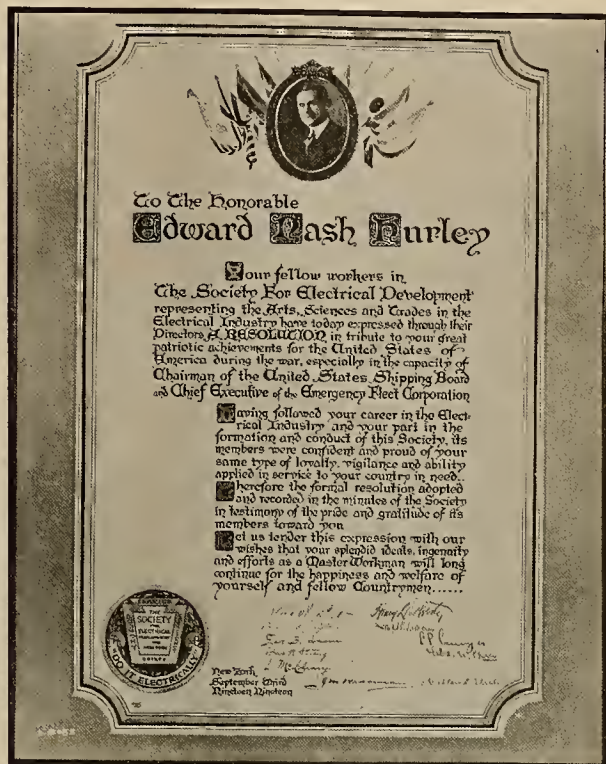 To The Honorable
Edward Nash Hurley
Your fellow workers in
The Society For Electrical Development
representing the Arts, Sciences and Trades in the
Electrical Industry have today expressed through their
Directors, A RESOLUTION in tribute to your great
patriotic achievements for the United States of
America during the war, especially in the capacity of
Chairman of the United States Shipping Board
and Chief Executive of the Emergency Fleet Corporation
Having followed your career in the Elect-
rical Industry and your part in the
formation and conduct of this Society, its
members were confident and proud of your
same type of loyalty, vigilance and ability
applied in service to your country in need..
Therefore the formal resolution adopted
and recorded in the minutes of the Society
in testimony of the pride and gratitude of its
members toward you
Let us tender this expression with our
wishes that your splendid ideals, ingenuity
and efforts as a Master Workman will long
continue for the happiness and welfare of
yourself and fellow Countrymen......
THE
SOCIETY
FOR
ELECTRICAL
DEVELOPMENT
"DO IT ELECTRICALLY"
New York
September Third
Nineteen Nineteen